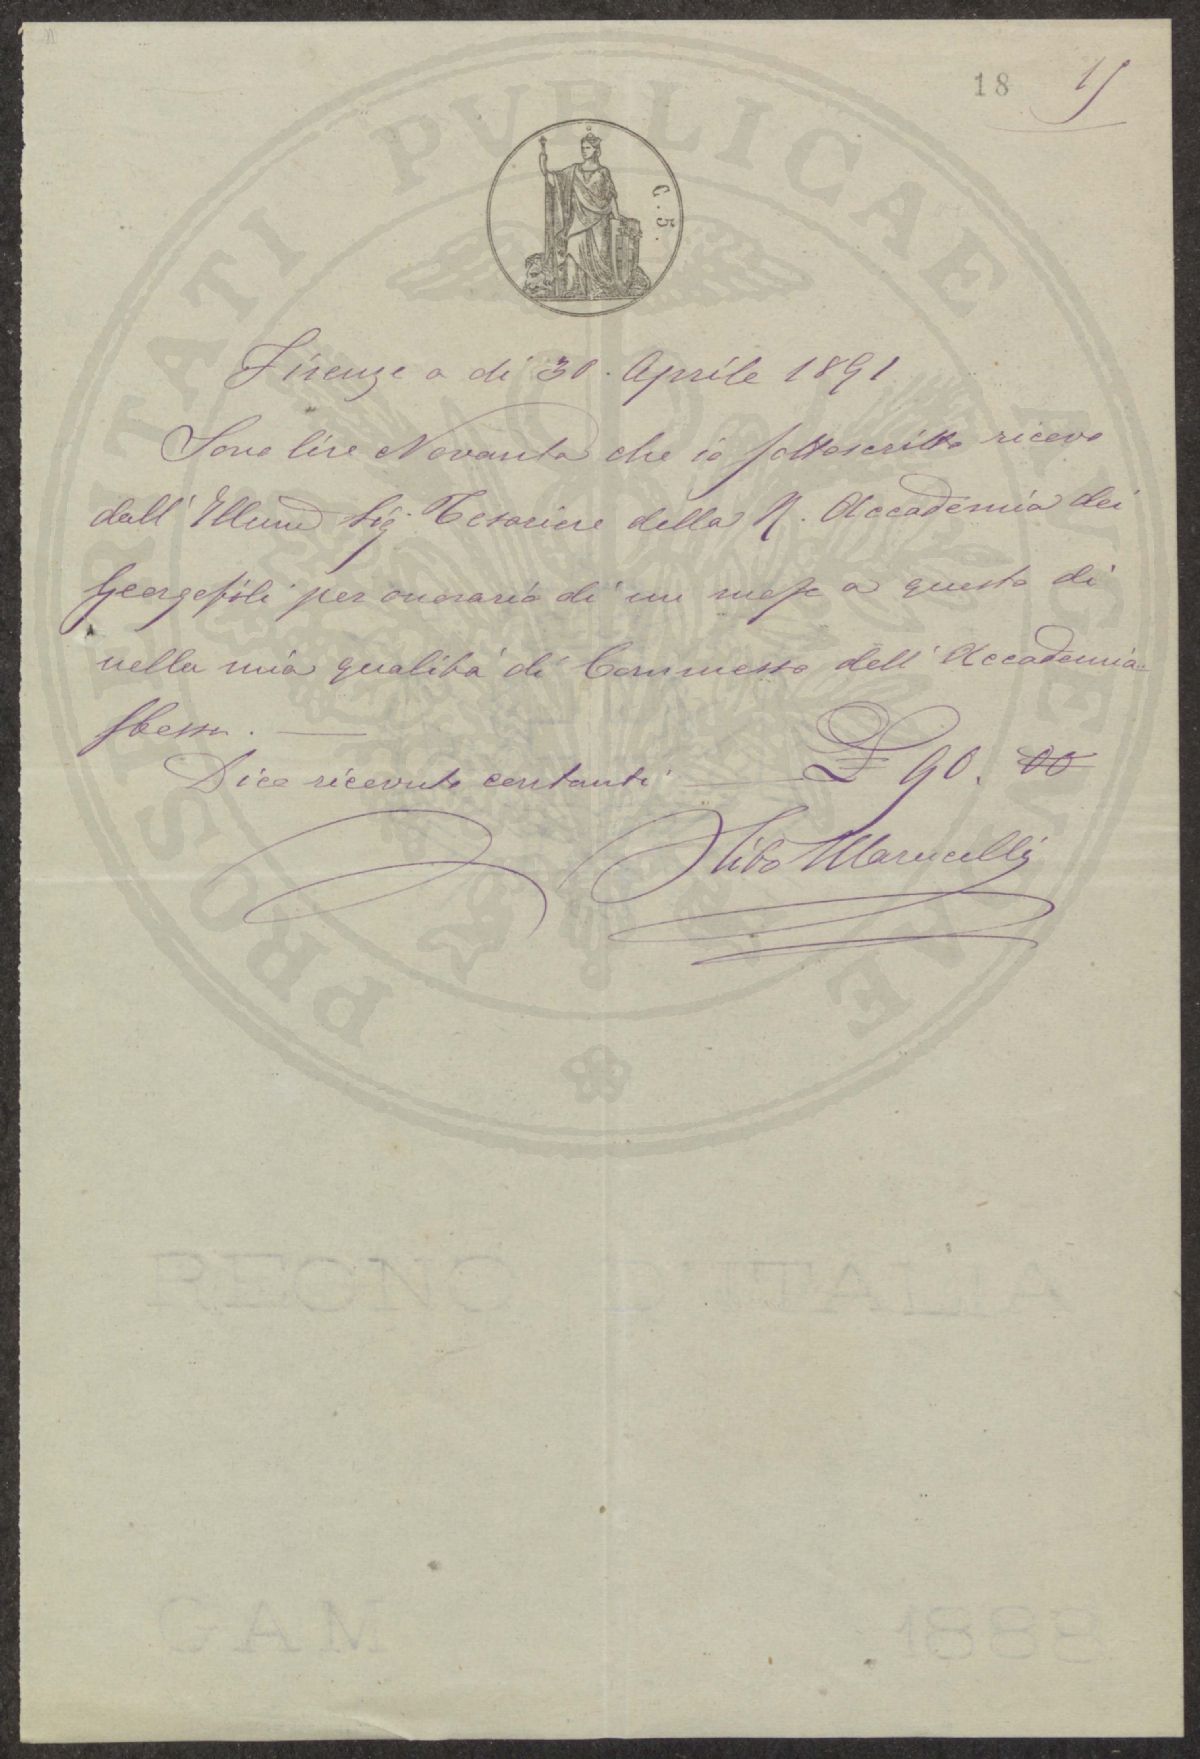 18 15
C. 5.
PROSPERITATI PVBLICAE AVGENDAE
Firenze a di 30. Aprile 1891
Sono lire Novanta che io sottoscritto ricevo
dall' Illmo Sig. Tesoriere della R. Accademia dei
Georgofili per onorario di un mese a questo dì
nella mia qualità di Commesso dell' Accademia
stessa.
Dico ricevute contanti £ 90. 00
Marucelli
REGNO D'ITALIA
GAM 1888